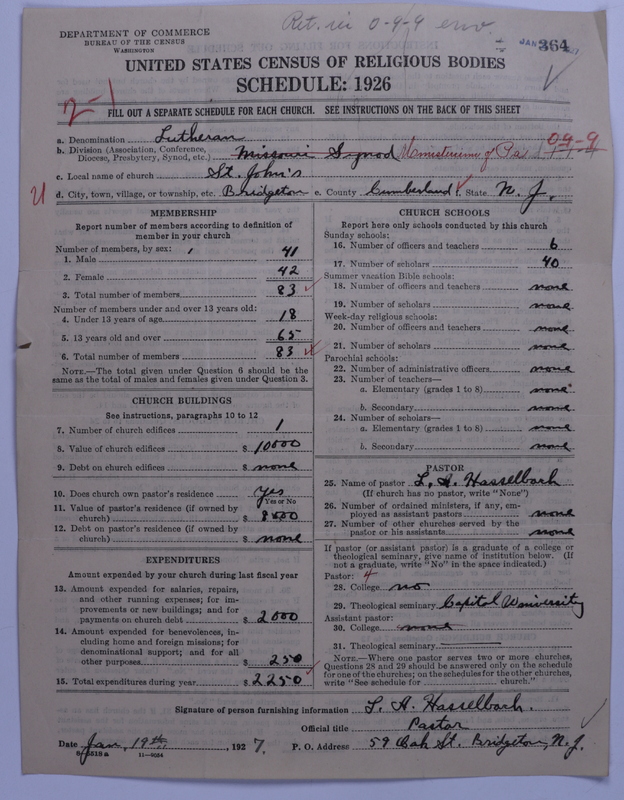 Ret. in 0-9-9 
DEPARTMENT OF COMMERCE
BUREAU OF THE CENSUS
WASHINGTON
JAN 364
UNITED STATES CENSUS OF RELIGIOUS BODIES
SCHEDULE: 1926
2-1
FILL OUT A SEPARATE SCHEDULE FOR EACH CHURCH. SEE INSTRUCTIONS ON THE BACK OF THIS SHEET
a. Denomination Lutheran
b. Division (Association, Conference, Diocese, Presbytery, Synod, etc.) Missouri Synod Ministerium of Pa 09-9
c. Local name of church St. John's
d. City, town, village, or township, etc. Bridgeton e. County Cumberland f. State N. J.
MEMBERSHIP
Report number of members according to definition of
member in your church
Number of members, by sex:
1. Male 41
2. Female 42
3. Total number of members 83
Number of members under and over 13 years old:
4. Under 13 years of age 18
5. 13 years old and over 65
6. Total number of members 83
NOTE.—The total given under Question 6 should be
same as the total of males and females given under Question 3.
CHURCH BUILDINGS
See instructions, paragraphs 10 to 12
7. Number of church edifices 1
8. Value of church edifices $ 10000
9. Debt on church edifices $ none
10. Does church own pastor's residence Yes
Yes or No
11. Value of pastor's residence (if owned by
church) $ 8000
12. Debt on pastor's residence (if owned by
church) $ none
EXPENDITURES
Amount expended by your church during last fiscal year
13. Amount expended for salaries, repairs,
and other running expenses; for im-
provements or new buildings; and for
payments on church debt $ 2000
14. Amount expended for benevolences, in-
cluding home and foreign missions; for
denominational support; and for all
other purposes $ 250
15. Total expenditures during year $ 2250
CHURCH SCHOOLS
Report here only schools conducted by this church
Sunday schools:
16. Number of officers and teachers 6
17. Number of scholars 40
Summer vacation Bible schools:
18. Number of officers and teachers none
19. Number of scholars none
Week-day religious schools:
20. Number of officers and teachers none
21. Number of scholars none
Parochial schools:
22. Number of administrative officers none
23. Number of teachers—
a. Elementary (grades 1 to 8) none
b. Secondary none
24. Number of scholars—
a. Elementary (grades 1 to 8) none
b. Secondary none
PASTOR
25. Name of pastor L. A. Hasselbach
(If church has no pastor, write "None")
26. Number of ordained ministers, if any, em-
ployed as assistant pastors none
27. Number of other churches served by the
pastor or his assistants none
If pastor (or assistant pastor) is a graduate of a college or
theological seminary, give name of institution below. (If
not a graduate, write "No" in the space indicated.)
Pastor: 4
28. College no
29. Theological seminary Capitol University
Assistant pastor:
30. College none
31. Theological seminary
NOTE.—Where one pastor serves two or more churches,
Questions 28 and 29 should be answered only on the schedule
for one of the churches; on the schedules for the other churches,
write "See schedule for church."
Signature of person furnishing information L. A. Hasselbach.
Official title Pastor
Date Jan, 19th, 1927. P. O. Address 59 Oak St. Bridgeton, N. J.
8-5518a 11-9054